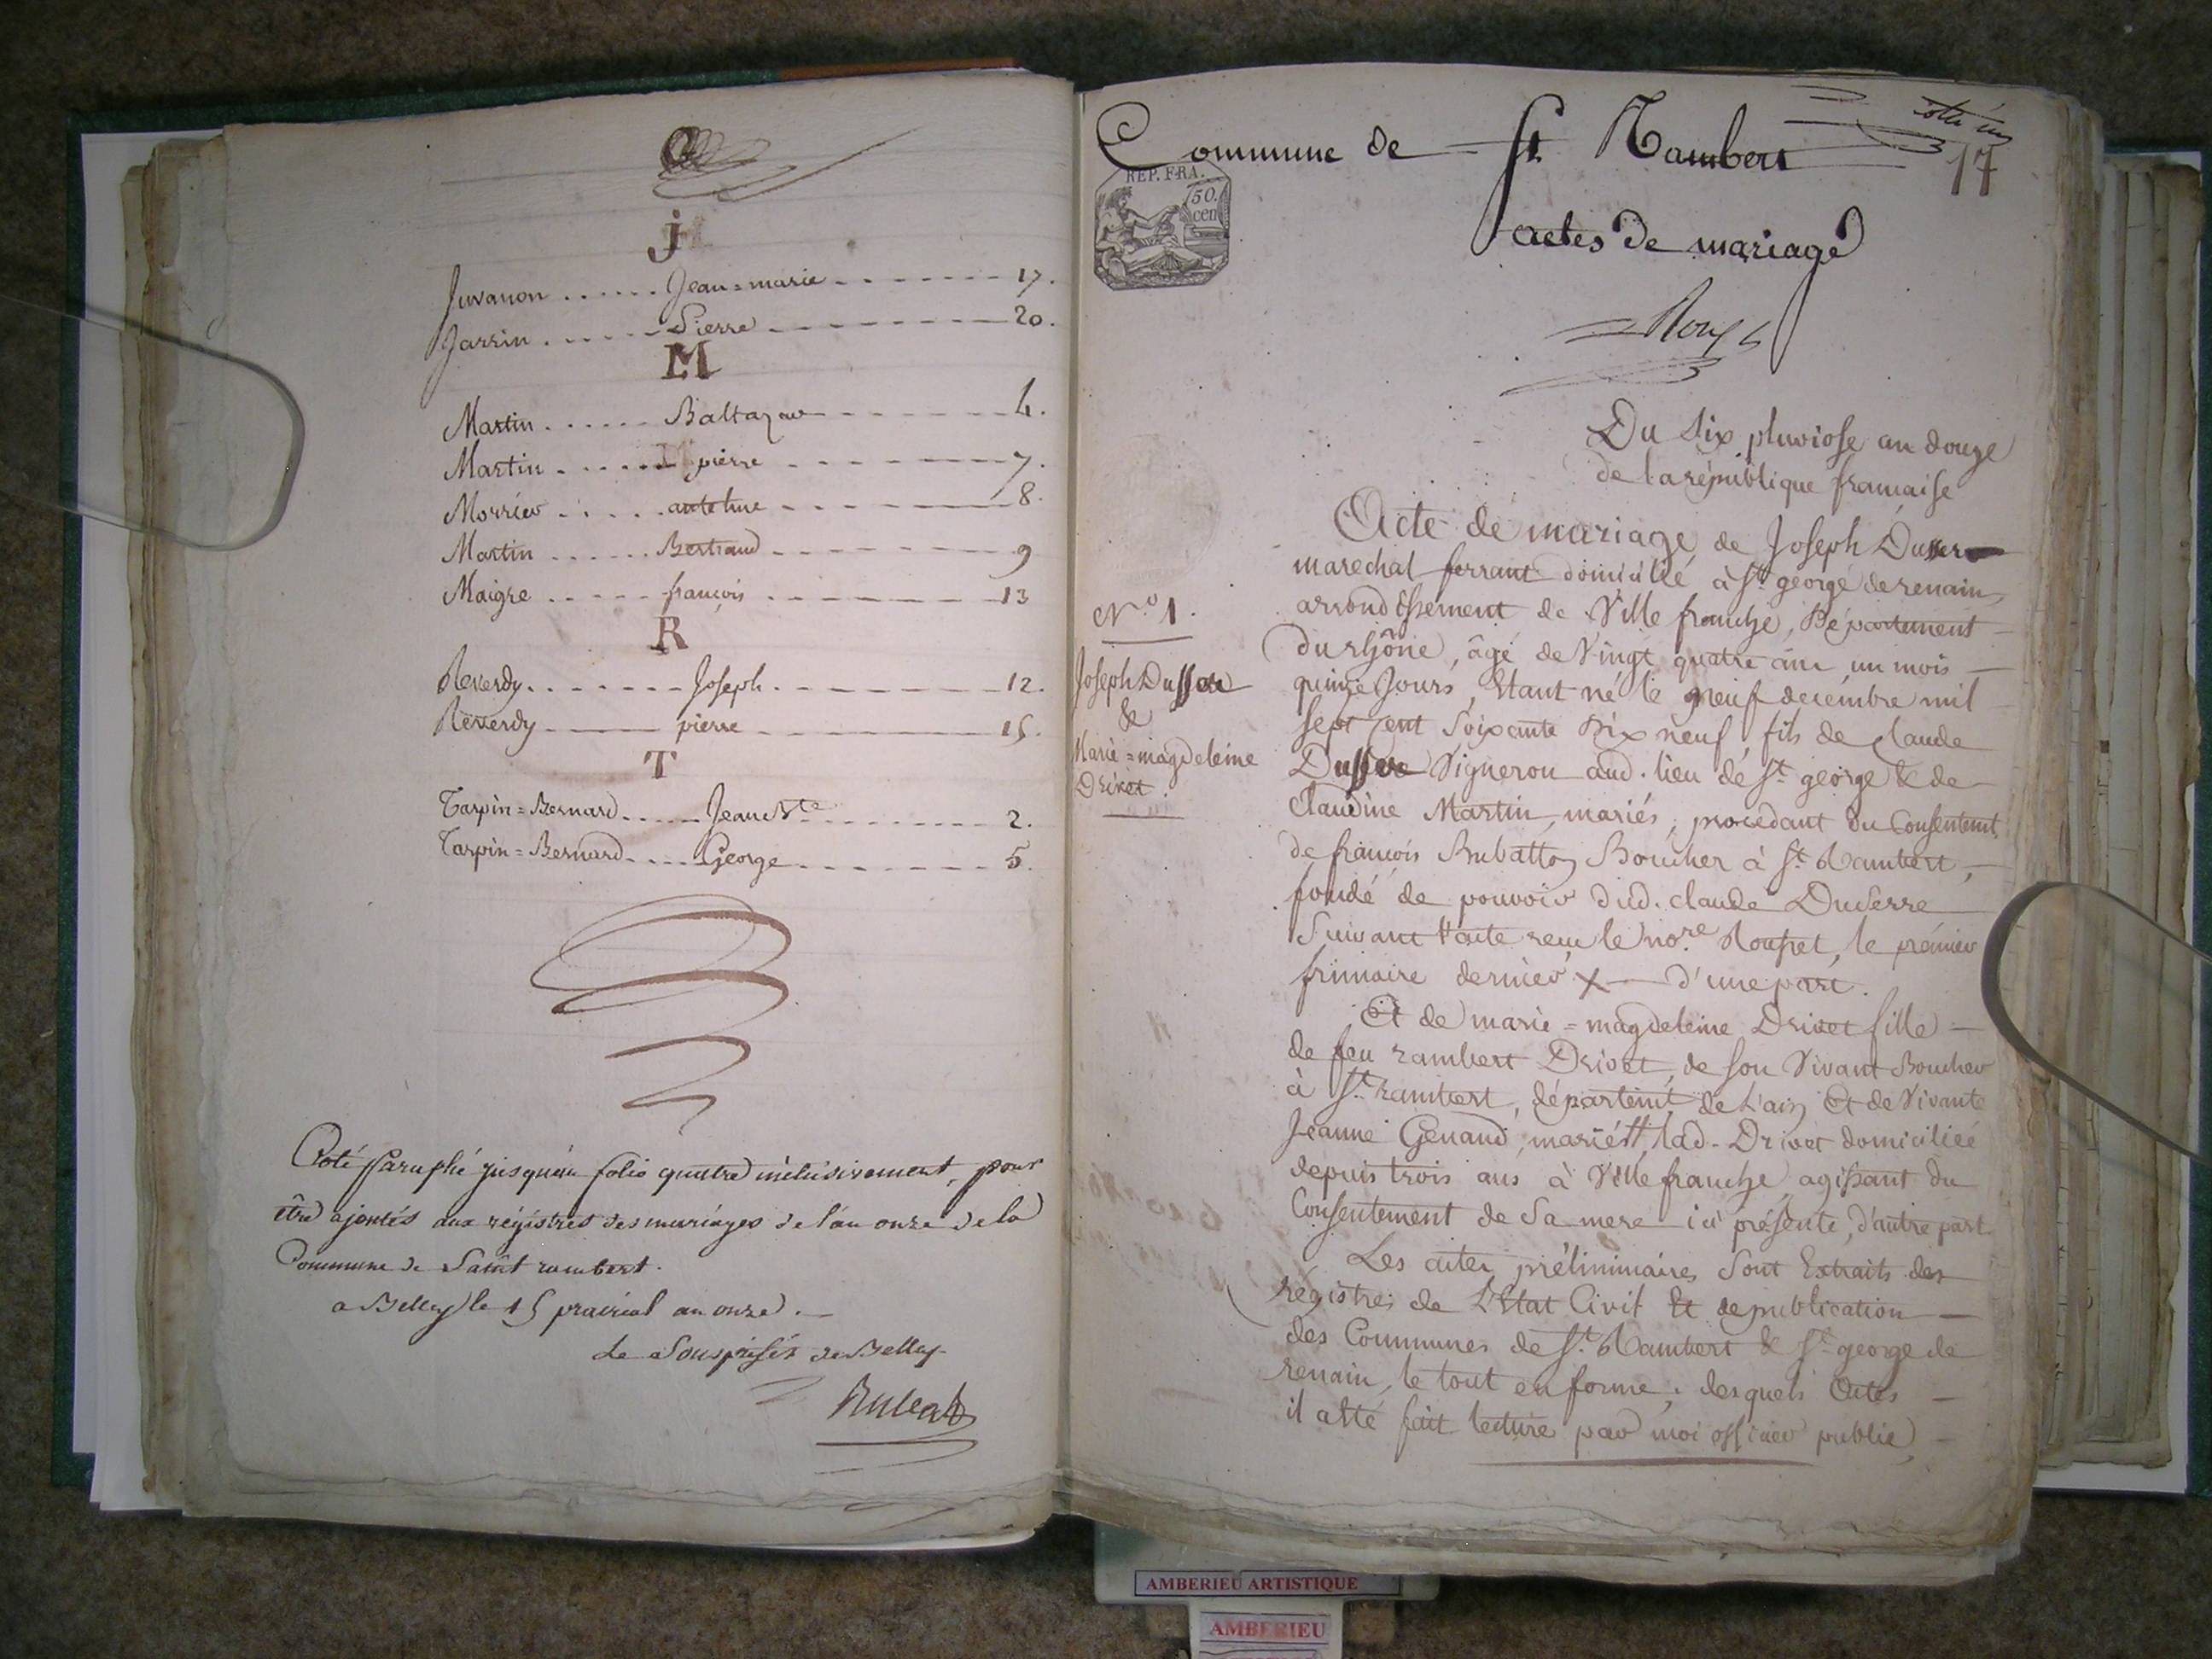 J
Juvanon ...... Jean=marie ------- 17.
Jarrin ..... Pierre ---------- 20.
M
Martin ...... Baltazar ------- 4.
Martin ...... pierre --------- 7.
Morrier ..... antelme -------- 8.
Martin ...... Bertrand ------- 9
Maigre ----- françois -------- 13
R
Reverdy ....... Joseph. -------- 12.
Reverdy ------ pierre ---------- 15.
T
Tarpin=Bernard ..... Jean Bte ........ 2.
Tarpin=Bernard .... George ........ 5.
Coté Paraphé jusqu'au folio quatre inclusivement, pour
être ajoutés aux régistres des mariages de l'an onze de la
Commune de Saint rambert.
a Belley le 15 prairial an onze.
Le Sousprefet de Belley
Commune de St Rambert
17
REP. FRA.
50.
cen
actes de mariage
Du Six pluviose an douze
de la république française
Acte de mariage de Joseph Dusser
marechal ferrant domicilié à St george de renain,
arrondissement de Ville franche, Département
du rhône, âgé de Vingt quatre ans un mois
quinze Jours, Etant né le neuf decembre mil
Sept Cent Soixante Dix neuf, fils de Claude
Dusser Vigneron aud. lieu de St george & de
Claudine Martin, mariés, procedant du Consentemt
de françois Boucher à St Rambert,
fondé de pouvoir dud. claude Duserre
Suivant l'acte recu le nore Rousset, le prémier
frimaire dernier X d'une part.
Et de marie=magdeleine Drivet fille
de feu rambert Drivet, de son Vivant Boucher
à St rambert, départemt de L'ain, Et de Vivante
Jeanne Genaud, mariés, lad. Drivet domiciliée
depuis trois ans à Ville franche, agissant du
Consentement de Sa mere ici présente, d'autre part
Les actes préliminaires Sont Extraits des
régistres de L'Etat Civil Et de publication
des Communes de St Rambert & St george de
renain, le tout en forme, desquels Actes
il a Eté fait lecture par moi officier public,
No. 1.
Joseph Dusser
&
Marie=magdeleine
Drivet
AMBERIEU ARTISTIQUE
AMBERIEU